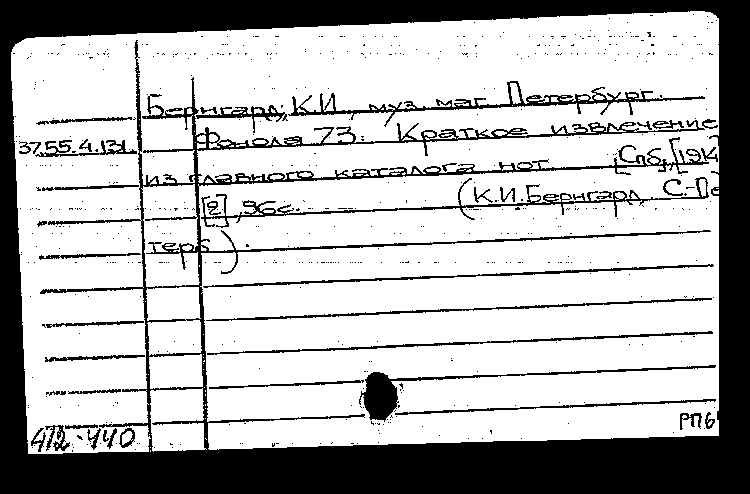 Бернгард, К.И., муз. маг. Петербург.
37.55.4.131. Фонола 73. Краткое извлечение
из главного каталога нот. [Спб, [1914
[2], 96с. (К.И.Бернгард, С.-Пе
терб).
412-440
РП6